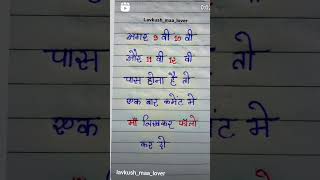 Lavkush_maa_lover
अगर 9 वी 10 वी
और 11 वी 12 वी
पास होना है तो
एक बार कमेंट मे
माँ लिखकर फॉलो
कर दो
lavkush_maa_lover